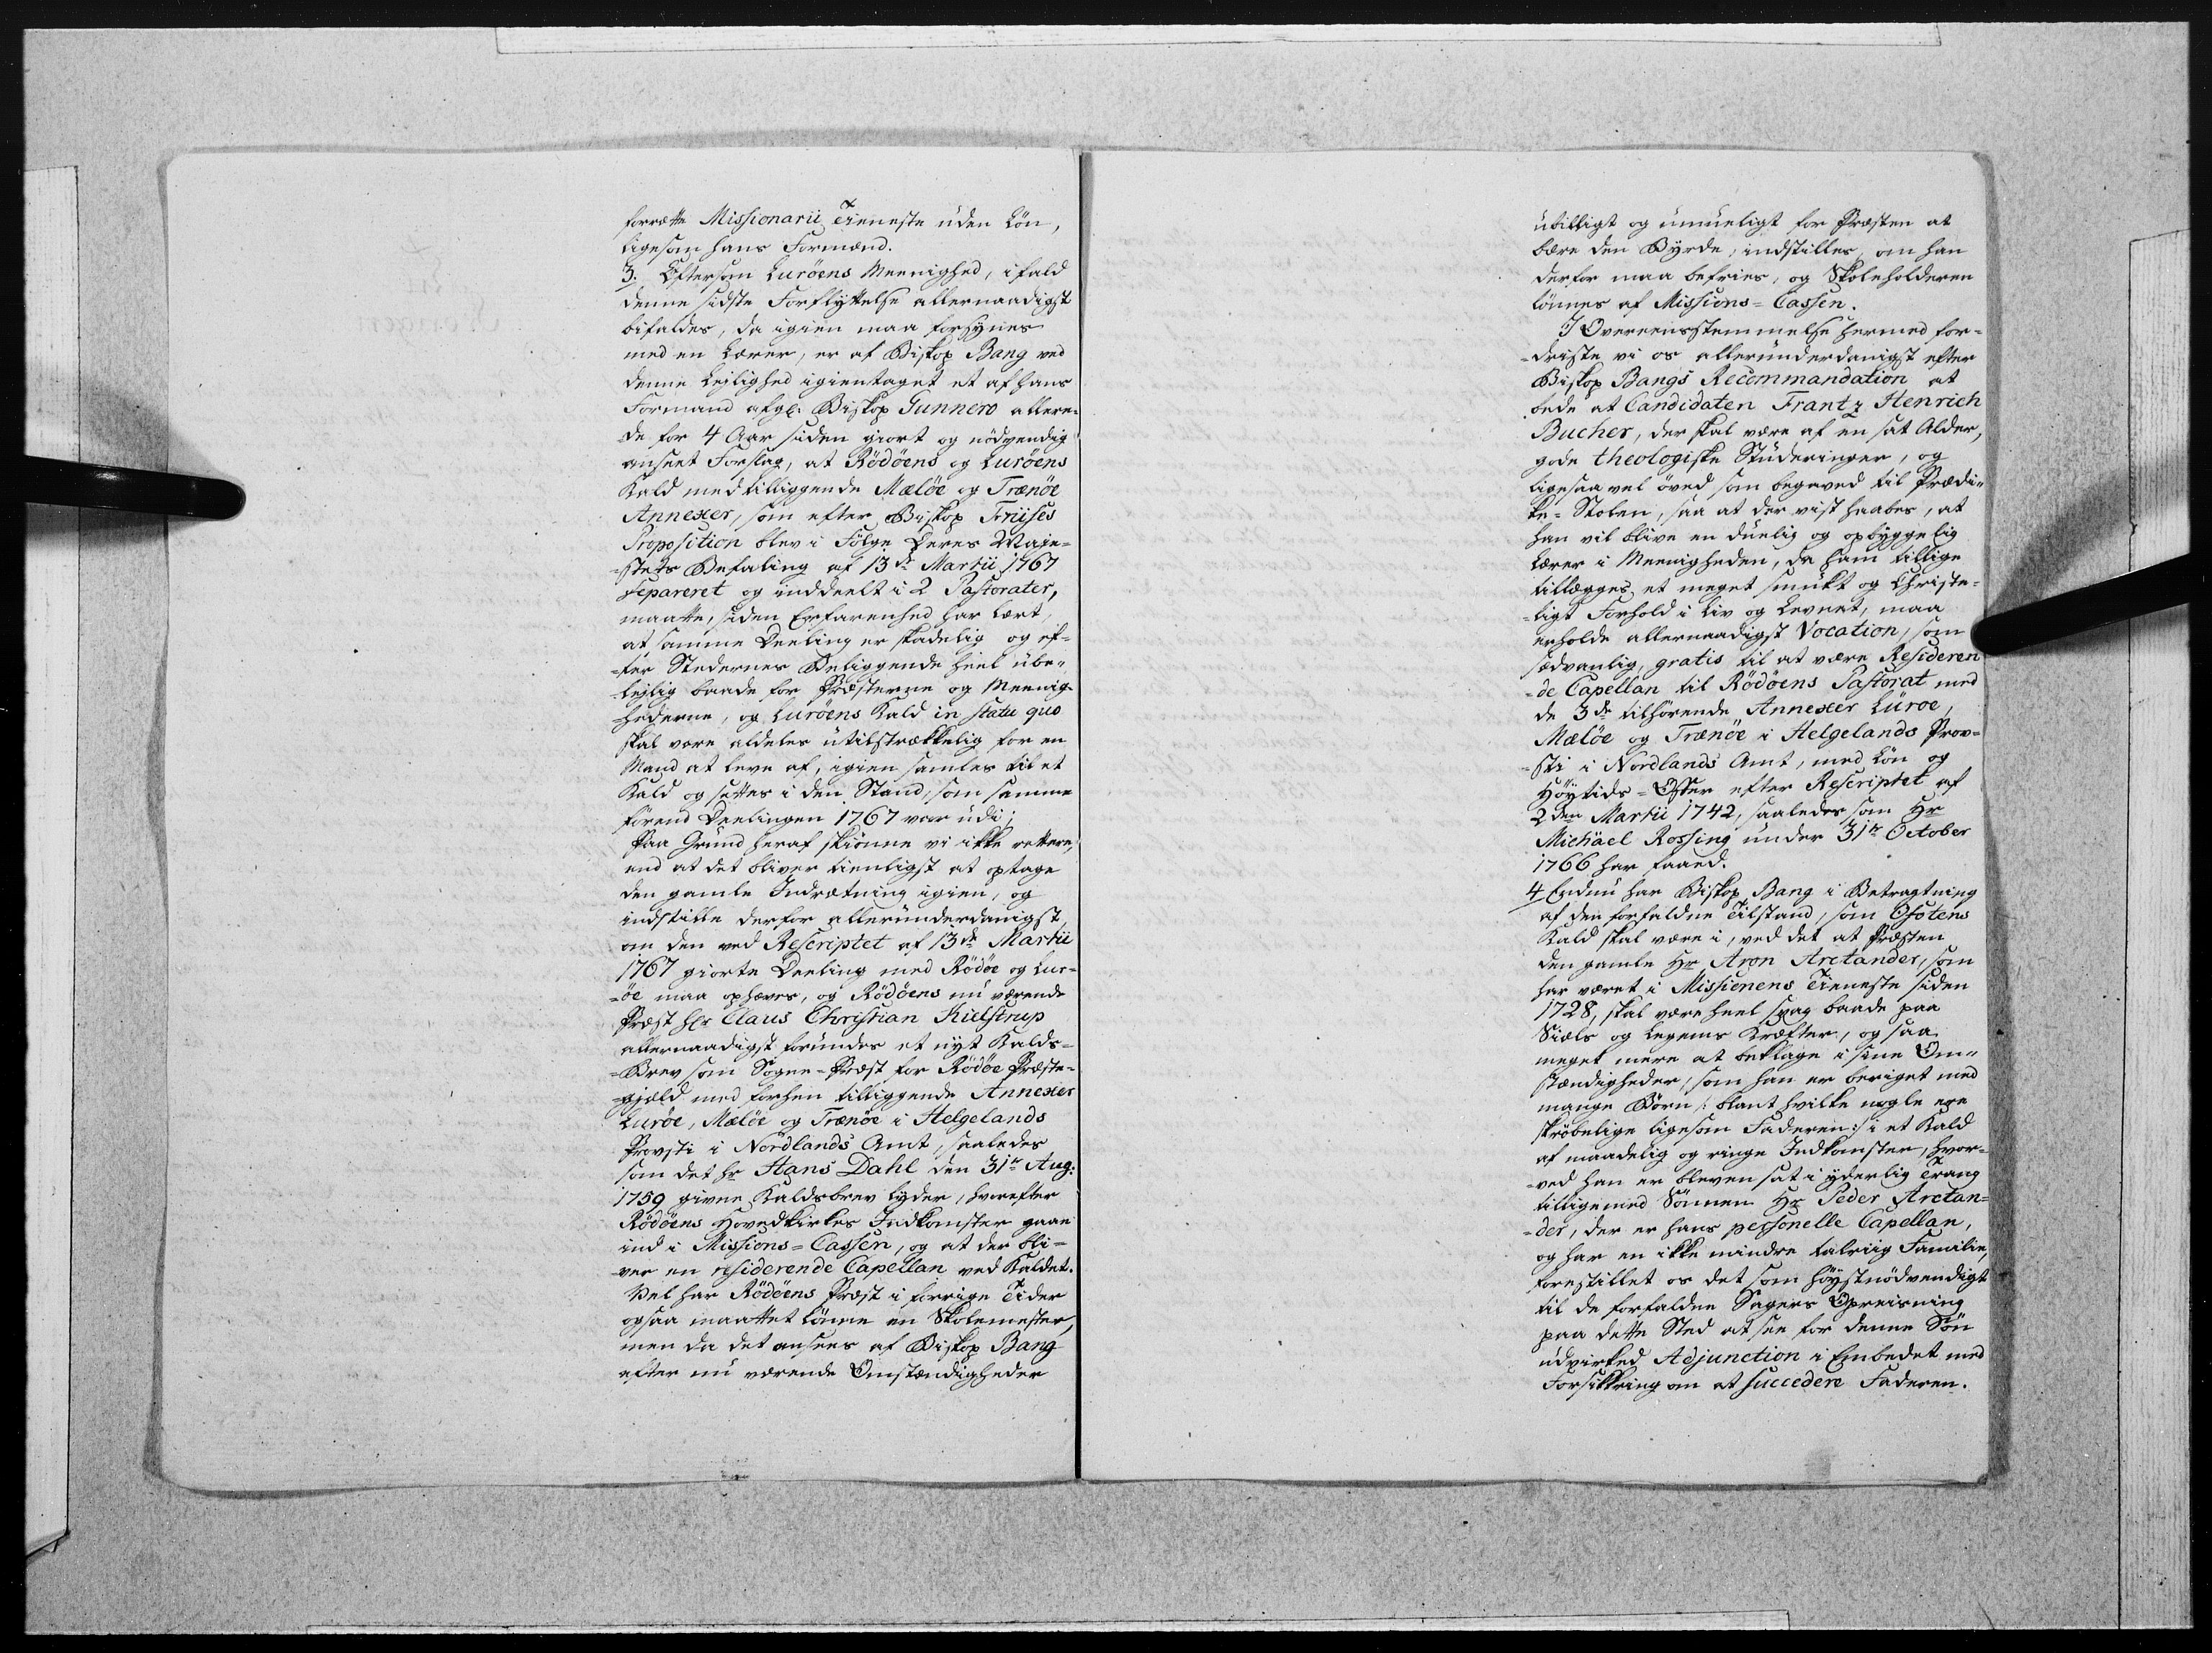 forrætte Missionarii Tieneste uden Løn,
ligesom hans Formænd.
3. Eftersom Lurøens Meenighed, ifald
denne sidste Forflyttelse allernaadigst
bifaldes, da igien maa forsynes
med en Lærer, er af Biskop Bang ved
denne Leilighed igientaget et af hans
Formand afgl: Biskop Gunnero allere-
de for 4 Aar siden giort og nødvendig
anseet Forslag, at Rødøens og Lurøens
Kald med tilliggende Meløe og Trænøe
Annexer, som efter Biskop Friises
Proposition blev i Følge Deres Maje-
-stets Befaling af 13de Martii 1767
separeret og inddeelt i 2 Pastorater,
maatte, siden Erfarenhed har lært,
at samme Deeling er skadelig og ef-
-ter Stedernes Beliggende heel ube-
-leilig baade for Præsterne og Meenig-
-hederne, og Lurøens Kald in statu quo
skal være aldeles utilstrækkelig for en
Mand at leve af, igien samles til et
Kald og settes i den Stand, som samme
førend Deelingen 1767 var udi;
Paa Grund heraf skiønne vi ikke rettere,
end at det bliver tienligst at optage
den gamle Indretning igien, og
indstille derfor allerunderdanigst,
om den ved Rescriptet af 13de Martii
1767 giorte Deeling med Rødøe og Lur-
-øe maa ophæves, og Rødøens nu værende
Præst Hr Claus Christian Kielstrup
allernaadigst forundes et nyt Kalds-
-Brev som Sogne-Præst for Rødøe Præste-
-gield med forhen tilliggende Annexer
Lurøe, Meløe og Trænøe i Helgelands
Provsti i Nordlands Amt, saaledes
som det Hr Hans Dahl den 31te Aug:
1759 givne Kaldsbrev lyder, hvorefter
Rødøens Hovedkirkes Indkomster gaae
ind i Missions-Cassen, og at der bli-
-ver en residerende Capellan ved Kaldet.
Vel har Rødøens Præst i forrige Tider
ogsaa maattet lønne en Skolemester,
men da det ansees af Biskop Bang
efter nu værende Omstændigheder
ubilligt og umueligt for Præsten at
bære den Byrde, indstilles, om han
derfor maa befries, og Skoleholderen
lønnes af Missions-Cassen.
I Overeensstemmelse hermed for-
-driste vi os allerunderdanigst efter
Biskop Bangs Recommandation at
bede at Candidaten Frantz Henrich
Bucher, der skal være af en sat Alder,
gode theologiske Studeringer, og
ligesaa vel øved som begaved til Prædi-
ke-Stolen, saa at der vist haabes, at
han vil blive en duelig og opbyggelig
Lærer i Meenigheden, da ham tillige
tillægges et meget smukt og Christe-
-ligt Forhold i Liv og Levnet, maa
erholde allernaadigst Vocation, som
sædvanlig, gratis til at være Resideren
-de Capellan til Rødøens Pastorat med
de 3de tilhørende Annexer Luroe,
Meløe og Trænøe i Helgelands Prov-
-sti i Nordlands Amt, med Løn og
Høytids-Offer efter Rescriptet af
2den Martii 1742, saaledes som Hr
Michael Rossing under 31te October
1766 har faaed.
4 Endnu har Biskop Bang i Betragtning
af den forfaldne Tilstand, som Ofotens
Kald skal være i, ved det at Præsten
den gamle Hr Aron Arctander, som
har været i Missionens Tieneste siden
1728, skal være heel svag baade paa
Siæls og Legems Kræfter, og saa
meget mere at beklage i sine Om-
stændigheder, som han er beriget med
mange Børn /: blant hvilke nogle ere
skrøbelige ligesom Faderen :/ i et Kald
af maadelig og ringe Indkomster, hvor-
-ved han er bleven sat i yderlig Trang
tilligemed Sønnen Hr Peder Arctan-
-der, der er hans personelle Capellan,
og har en ikke mindre talriig Familie,
forestillet os det som høystnødvendigt
til de forfaldne Sagers Opreisning
paa dette Sted at see for denne Søn
udvirked Adjunction i Embedet med
Forsikkring om at succedere Faderen.